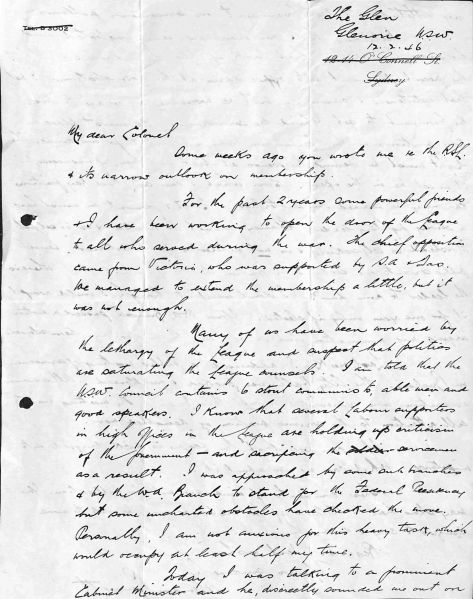 TEL. B 3002
The Glen
Glenorie NSW.
12.2.46
O'Connell St.
Sydney
My dear Colonel
Some weeks ago you wrote me re the RSL.
& its narrow outlook on membership.
For the past 2 years some powerful friends
& I have been working to open the door of the League
to all who served during the war. The chief opposition
came from Victoria, who was supported by S.A. & Tas.
We managed to extend the membership a little, but it
was not enough.
Many of us have been worried by
the lethargy of the League and suspect that politics
are saturating the League counsels. I am told that the
NSW. Council contains 6 stout communists, able men and
good speakers. I know that several Labour supporters
in high offices in the League are holding up criticism
of the Government — and sacrificing the serviceman
as a result. I was approached by some sub branches
& by the Branch to stand for the Federal Presidency,
but some uncharted obstacles have checked the move.
Personally, I am not anxious for this heavy task, which
would occupy at least half my time.
Today I was talking to a prominent
Cabinet Minister and he, discreetly sounded me out on